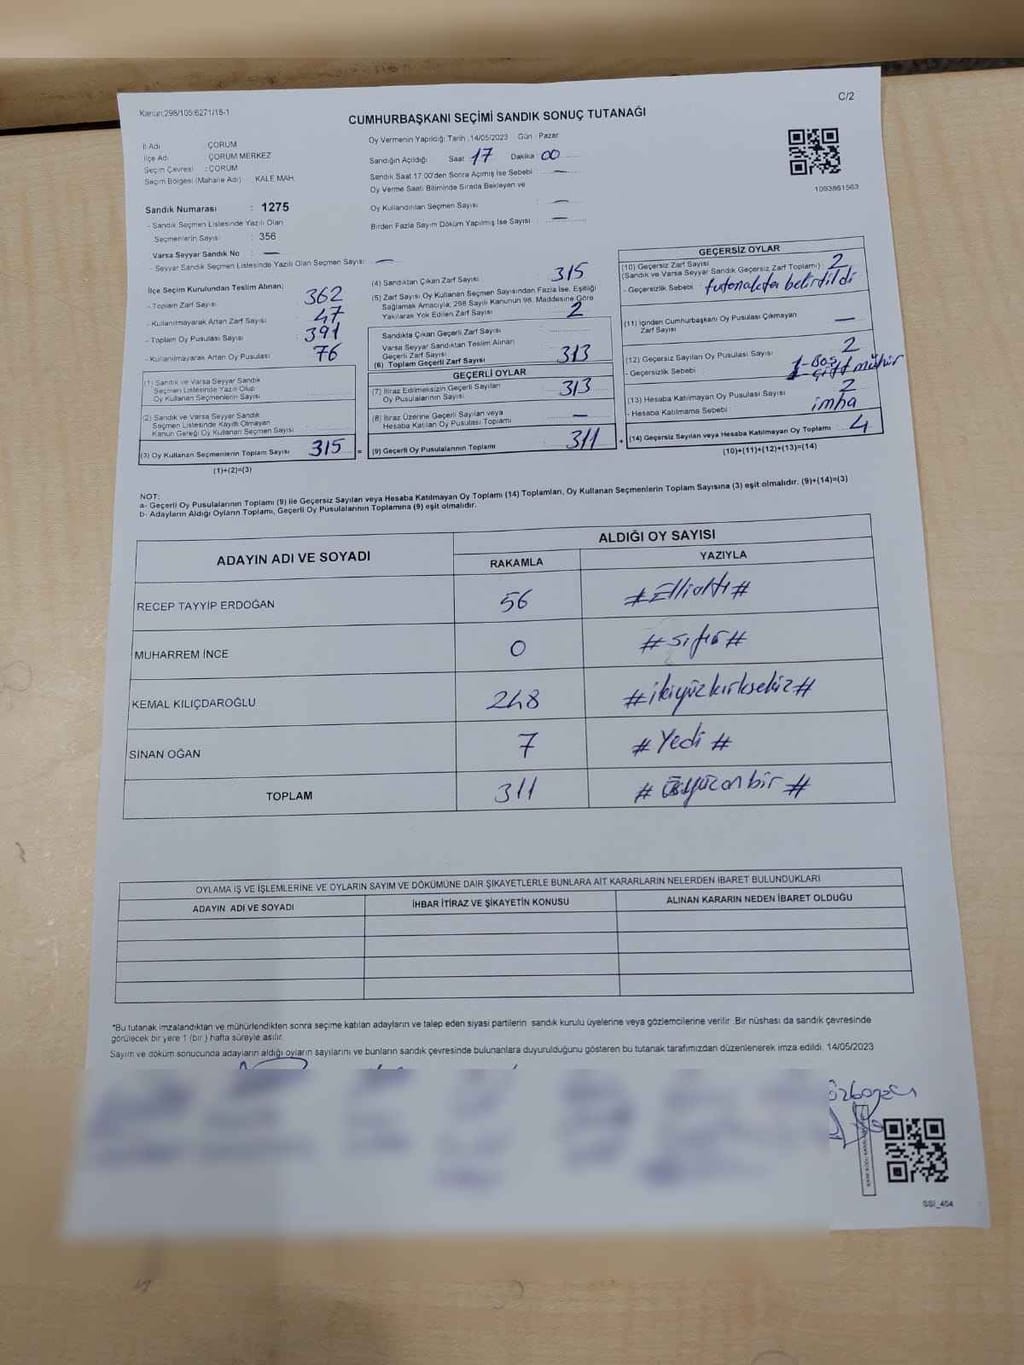 Kanun:298/105:6271/18-1
C/2
CUMHURBAŞKANI SEÇİMİ SANDIK SONUÇ TUTANAĞI
İl Adı : ÇORUM
İlçe Adı : ÇORUM MERKEZ
Seçim Çevresi : ÇORUM
Seçim Bölgesi (Mahalle Adı) : KALE MAH.
Oy Vermenin Yapıldığı: Tarih : 14/05/2023 Gün : Pazar
Sandığın Açıldığı Saat 17 Dakika 00
Sandık Saat 17:00'den Sonra Açılmış İse Sebebi —
Oy Verme Saati Bitiminde Sırada Bekleyen ve
Oy Kullandırılan Seçmen Sayısı : —
Birden Fazla Sayım Döküm Yapılmış İse Sayısı : —
1093861563
Sandık Numarası : 1275
- Sandık Seçmen Listesinde Yazılı Olan
Seçmenlerin Sayısı : 356
Varsa Seyyar Sandık No : —
- Seyyar Sandık Seçmen Listesinde Yazılı Olan Seçmen Sayısı : —
İlçe Seçim Kurulundan Teslim Alınan;
- Toplam Zarf Sayısı : 362
- Kullanılmayarak Artan Zarf Sayısı : 47
- Toplam Oy Pusulası Sayısı : 391
- Kullanılmayarak Artan Oy Pusulası : 76
(1) Sandık ve Varsa Seyyar Sandık
Seçmen Listesinde Yazılı Olup
Oy Kullanan Seçmenlerin Sayısı
(2) Sandık ve Varsa Seyyar Sandık
Seçmen Listesinde Kayıtlı Olmayan
Kanun Gereği Oy Kullanan Seçmen Sayısı
(3) Oy Kullanan Seçmenlerin Toplam Sayısı 315
(1)+(2)=(3)
(4) Sandıktan Çıkan Zarf Sayısı : 315
(5) Zarf Sayısı Oy Kullanan Seçmen Sayısından Fazla İse, Eşitliği
Sağlamak Amacıyla, 298 Sayılı Kanunun 98. Maddesine Göre
Yakılarak Yok Edilen Zarf Sayısı : 2
Sandıkta Çıkan Geçerli Zarf Sayısı :
Varsa Seyyar Sandıktan Teslim Alınan
Geçerli Zarf Sayısı
(6) Toplam Geçerli Zarf Sayısı 313
GEÇERLİ OYLAR
(7) İtiraz Edilmeksizin Geçerli Sayılan
Oy Pusulasının Sayısı 313
(8) İtiraz Üzerine Geçerli Sayılan veya
Hesaba Katılan Oy Pusulası Toplamı —
(9) Geçerli Oy Pusulalarının Toplamı 311
GEÇERSİZ OYLAR
(10) Geçersiz Zarf Sayısı
(Sandık ve Varsa Seyyar Sandık Geçersiz Zarf Toplamı) : 2
- Geçersizlik Sebebi : tutanakta belirtildi
(11) İçinden Cumhurbaşkanı Oy Pusulası Çıkmayan
Zarf Sayısı —
(12) Geçersiz Sayılan Oy Pusulası Sayısı 2
- Geçersizlik Sebebi 1-Boş
1-Çift mühür
(13) Hesaba Katılmayan Oy Pusulası Sayısı 2
- Hesaba Katılmama Sebebi imha
(14) Geçersiz Sayılan veya Hesaba Katılmayan Oy Toplamı 4
(10)+(11)+(12)+(13)=(14)
NOT:
a- Geçerli Oy Pusulalarının Toplamı (9) ile Geçersiz Sayılan veya Hesaba Katılmayan Oy Toplamı (14) Toplamları, Oy Kullanan Seçmenlerin Toplam Sayısına (3) eşit olmalıdır. (9)+(14)=(3)
b- Adayların Aldığı Oyların Toplamı, Geçerli Oy Pusulalarının Toplamına (9) eşit olmalıdır.
ADAYIN ADI VE SOYADI
ALDIĞI OY SAYISI
RAKAMLA YAZIYLA
RECEP TAYYİP ERDOĞAN 56 #Ellialtı#
MUHARREM İNCE 0 #sıfır#
KEMAL KILIÇDAROĞLU 248 #ikiyüzkırksekiz#
SİNAN OĞAN 7 #Yedi#
TOPLAM 311 #üçyüzonbir#
OYLAMA İŞ VE İŞLEMLERİNE VE OYLARIN SAYIM VE DÖKÜMÜNE DAİR ŞİKAYETLERLE BUNLARA AİT KARARLARIN NELERDEN İBARET BULUNDUKLARI
ADAYIN ADI VE SOYADI İHBAR İTİRAZ VE ŞİKAYETİN KONUSU ALINAN KARARIN NEDEN İBARET OLDUĞU
*Bu tutanak imzalandıktan ve mühürlendikten sonra seçime katılan adayların ve talep eden siyasi partilerin sandık kurulu üyelerine veya gözlemcilerine verilir. Bir nüshası da sandık çevresinde
görülecek bir yere 1 (bir ) hafta süreyle asılır.
Sayım ve döküm sonucunda adayların aldığı oyların sayılarını ve bunların sandık çevresinde bulunanlara duyurulduğunu gösteren bu tutanak tarafımızdan düzenlenerek imza edildi. 14/05/2023
SSİ_404